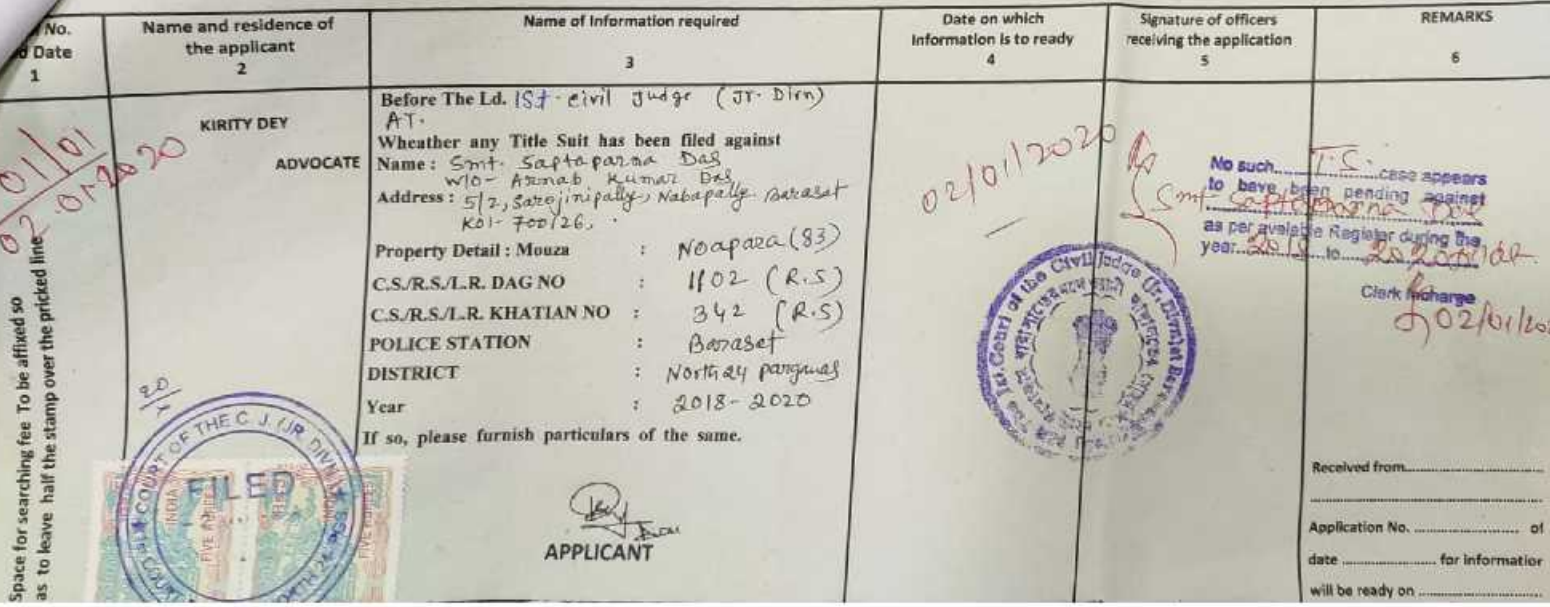 No.
Date
1
Name and residence of
the applicant
2
Name of Information required
3
Date on which
Information is to ready
4
Signature of officers
receiving the application
5
REMARKS
6
01/01
02.01.2020
KIRITY DEY
ADVOCATE
Before The Ld. 1St. civil Judge (Jr. Divn)
AT.
Wheather any Title Suit has been filed against
Name : Smt. Saptaparna Das
W/O- Arnab Kumar Das
Address : 5/2, Sarojinipally, Nabapally. Barasat
Kol- 700126.
Property Detail : Mouza : Noapara (83)
C.S./R.S./L.R. DAG NO : 1102 (R.S)
C.S./R.S./L.R. KHATIAN NO : 342 (R.S)
POLICE STATION : Barasat
DISTRICT : North 24 parganas
Year : 2018-2020
If so, please furnish particulars of the same.
APPLICANT
02/01/2020
No such T.S. case appears
to have been pending against
Smt Saptaparna Das
as per avelable Register during the
year 2018 to 2020
Clerk Incharge
02/01/202
Received from
Application No. of
date for information
will be ready on
Space for searching fee To be affixed so
as to leave half the stamp over the pricked line
COURT OF THE C.J. (JR. DIVN)
FILED
INDIA
FIVE RUPEES
FIVE RUPEES
Court of the Civil Judge (Jr. Divn) at